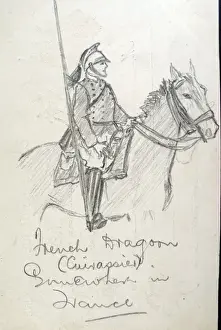 French Dragoon
(Cuirassier)
Somewhere in
France